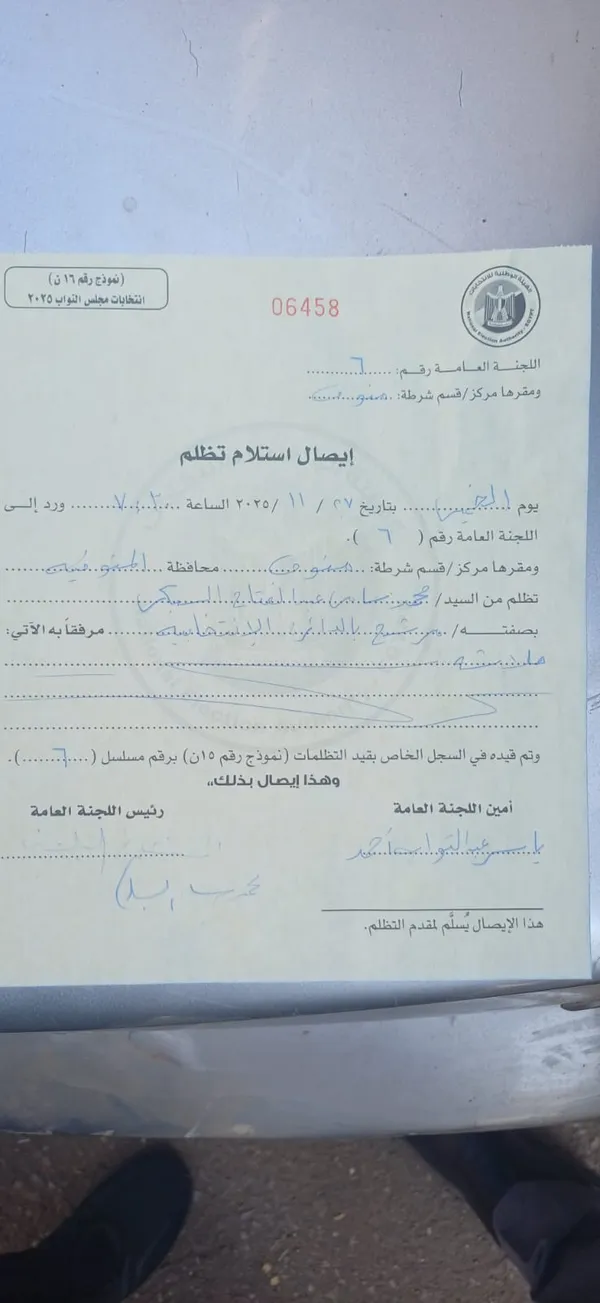 (نموذج رقم ١٦ ن)
انتخابات مجلس النواب ٢٠٢٥
06458
الهيئة الوطنية للانتخابات
National Election Authority - EGYPT
اللجنـة العامـة رقـم: ......٦......
ومقرها مركز/قسم شرطة: ..منوف..
إيصال استلام تظلم
يوم الخميس بتاريخ ٢٧ / ١١ /٢٠٢٥ الساعة ........ ورد إلـى
اللجنة العامة رقم ( ٦ ).
ومقرها مركز/قسم شرطة: ..منوف.. محافظة ..المنوفية..
تظلم من السيد/ محمد سامى عبد الفتاح
بصفتـــه/ مرشح بالدائرة الانتخابية ........ مرفقاً به الآتي:
وتم قيده في السجل الخاص بقيد التظلمات (نموذج رقم ١٥ن) برقم مسلسل (....٦....).
وهذا إيصال بذلك،،
أمين اللجنة العامة
رئيس اللجنة العامة
ياسر عبد التواب أحمد
هذا الإيصال يُسلَّم لمقدم التظلم.